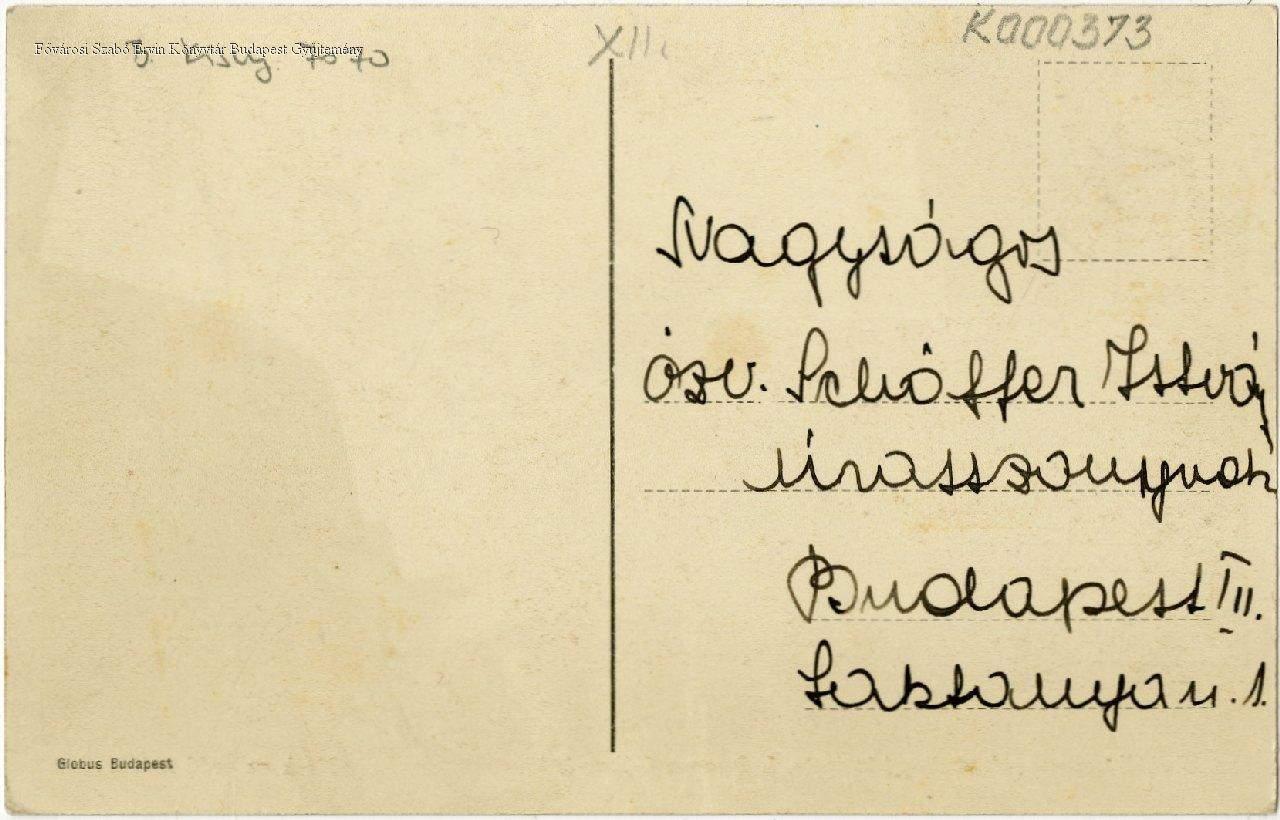 Fővárosi Szabó Ervin Könyvtár Budapest Gyűjtemény
7070
XII.
K000373
Nagyságos
özv. Schöffer István
úrasszonynak
Budapest III.
Laktanya u. 1.
Globus Budapest